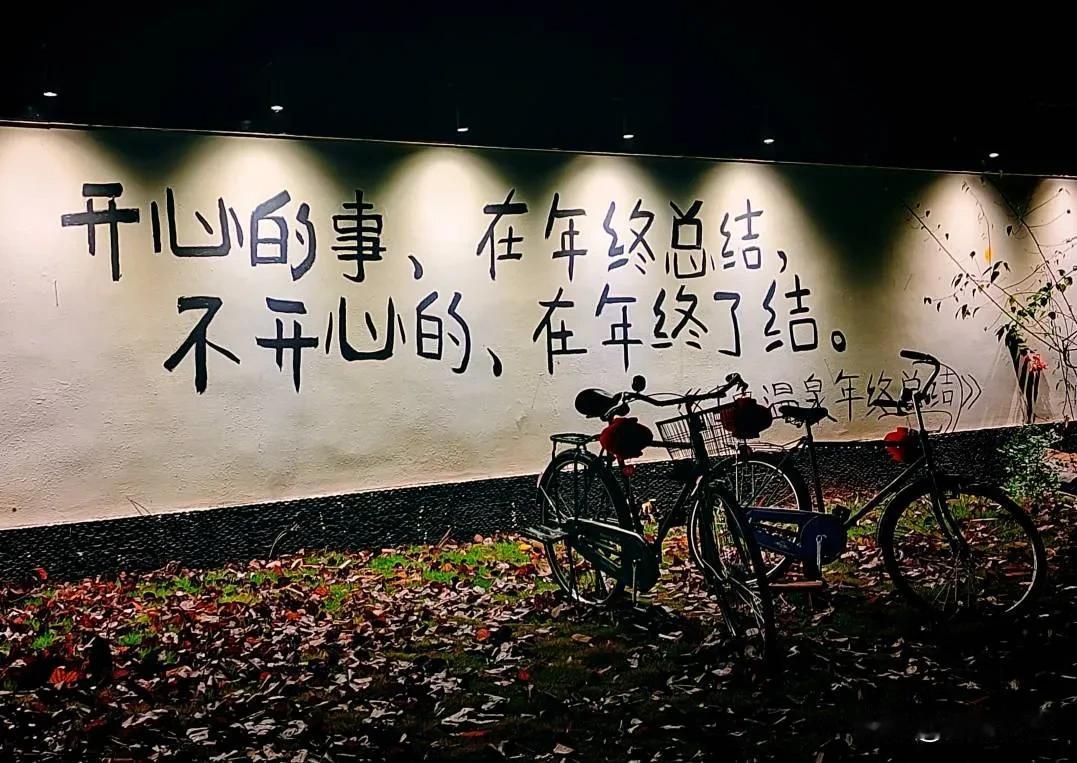 开心的事、在年终总结,
不开心的、在年终了结。
温泉年终总结》